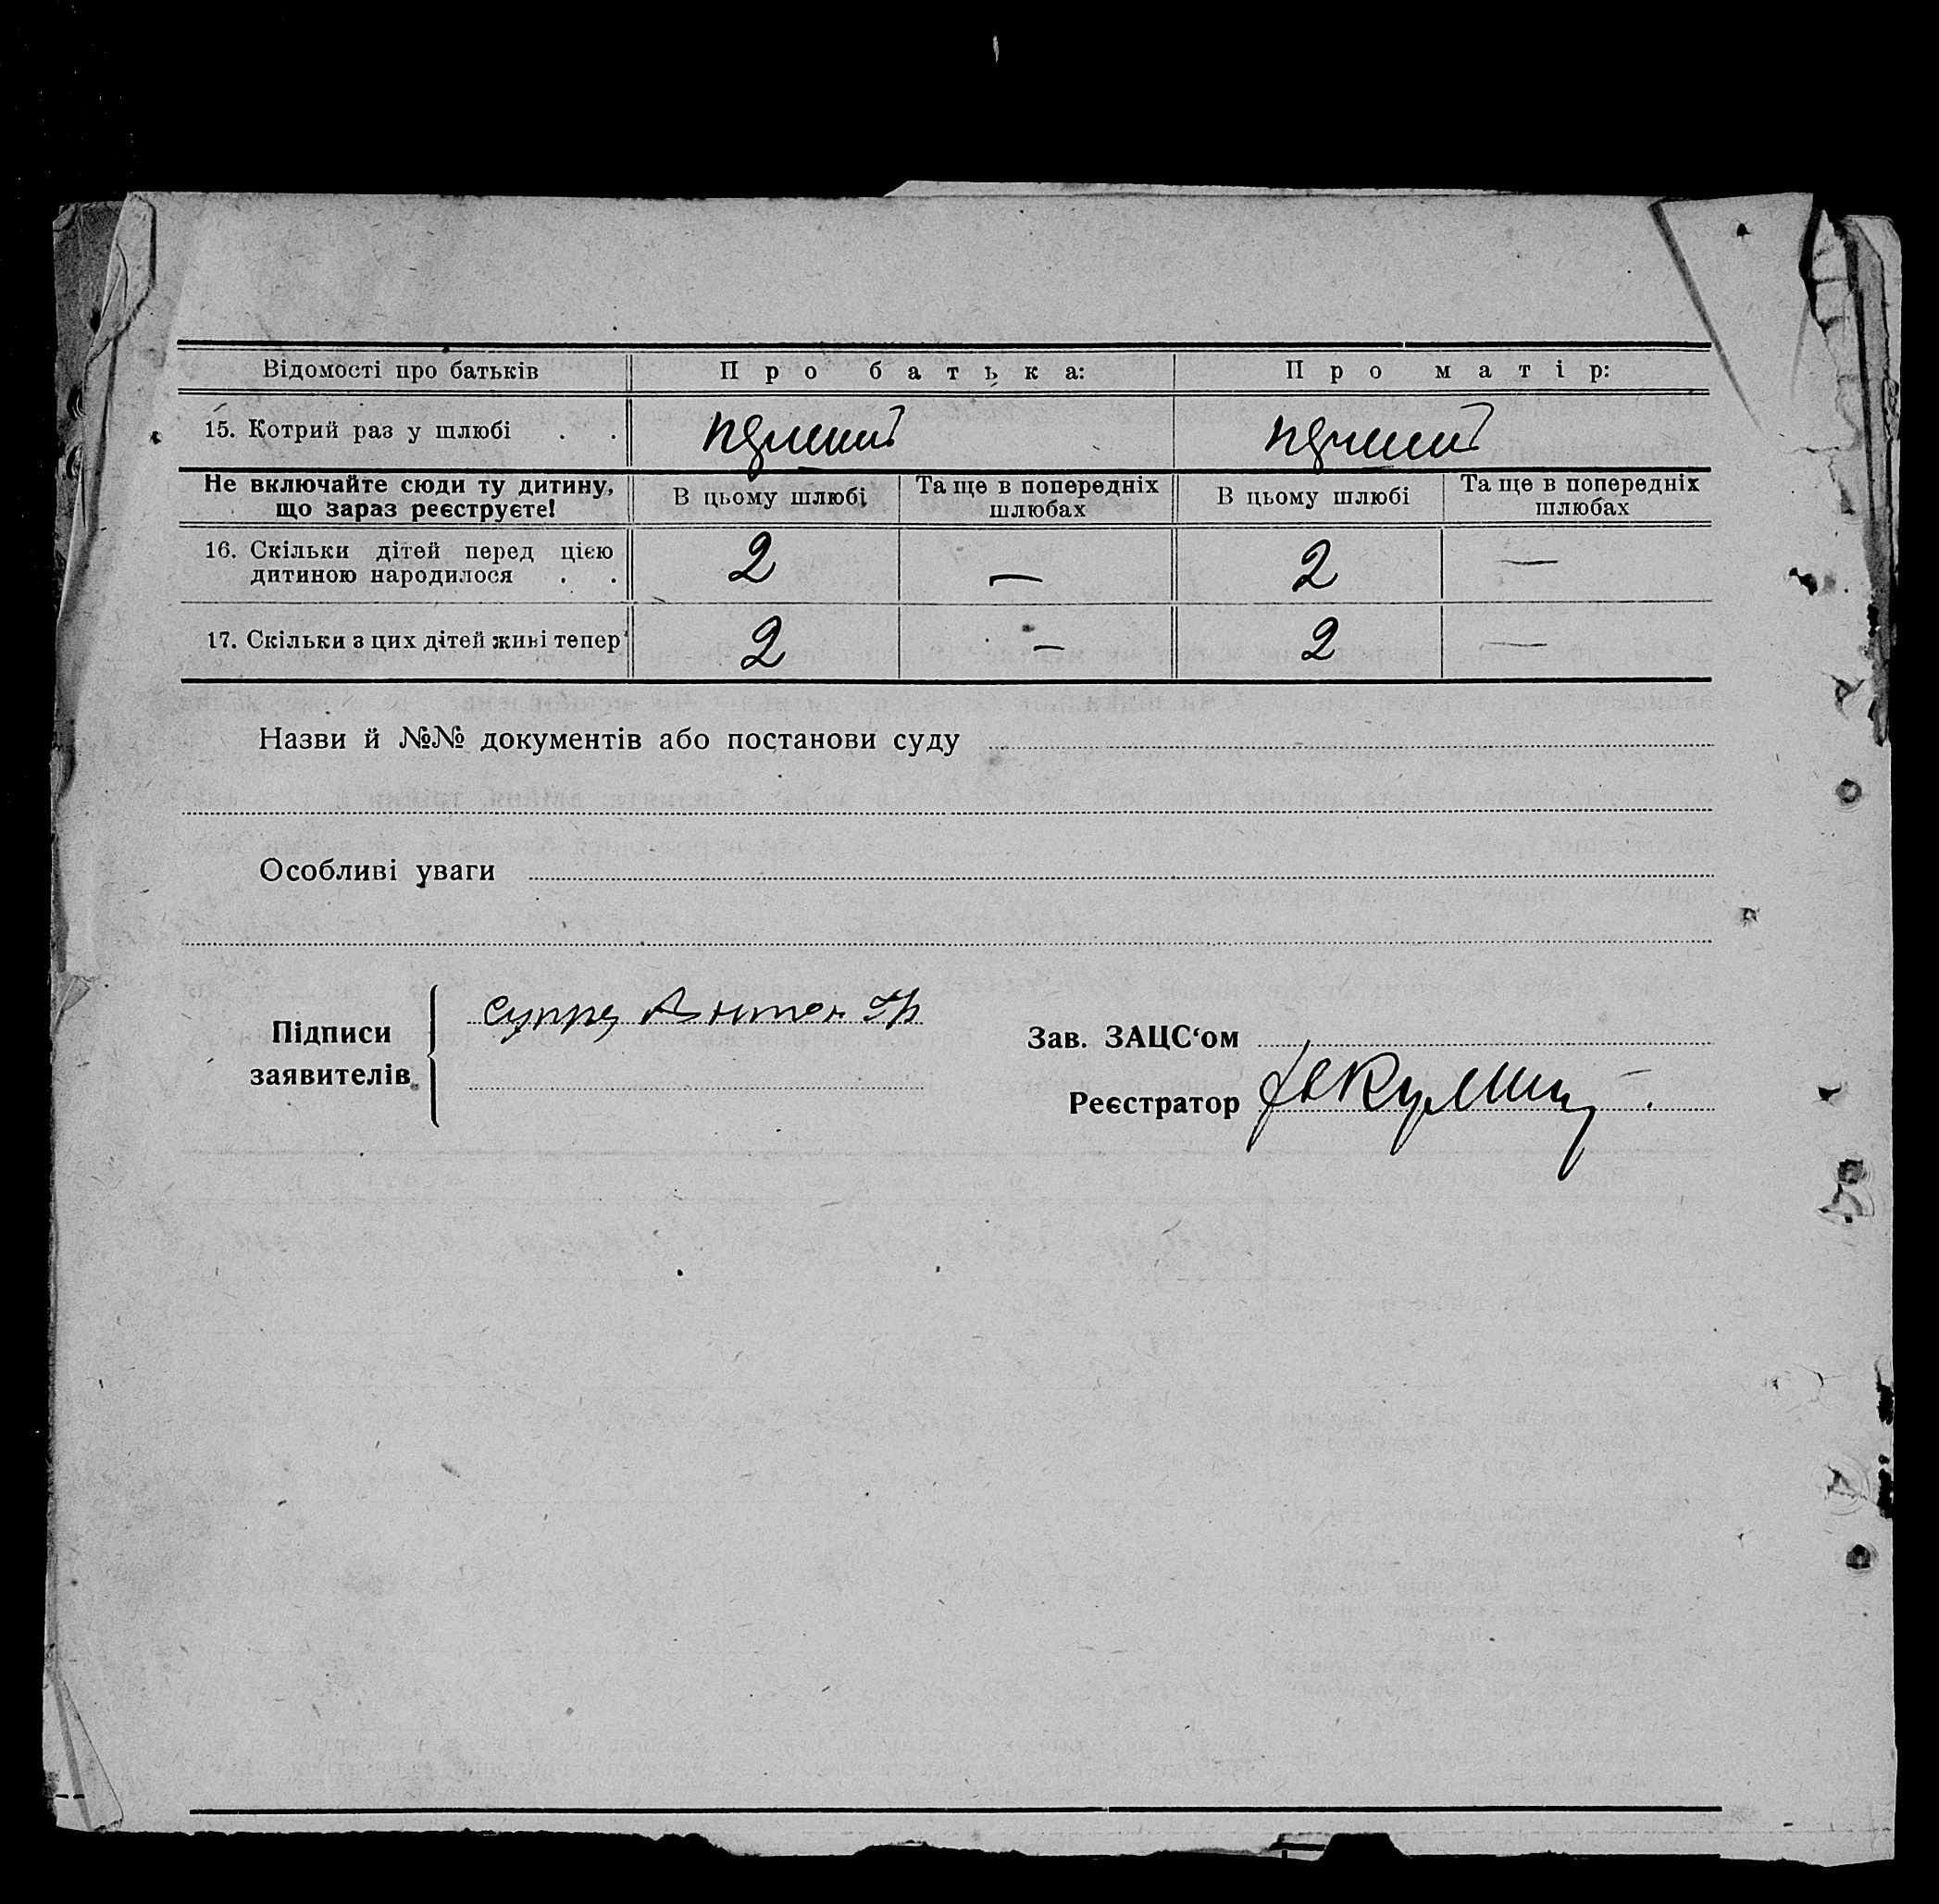 Відомості про батьків Про батька: Про матір:
15. Котрий раз у шлюбі . . перший перший
Не включайте сюди ту дитину, що зараз реєструєте! В цьому шлюбі Та ще в попередніх шлюбах В цьому шлюбі Та ще в попередніх шлюбах
16. Скільки дітей перед цією
дитиною народилося . . 2 — 2 —
17. Скільки з цих дітей живі тепер 2 — 2 —
Назви й №№ документів або постанови суду
Особливі уваги
Підписи
заявителів
Антон
Зав. ЗАЦС‘ом
Реєстратор